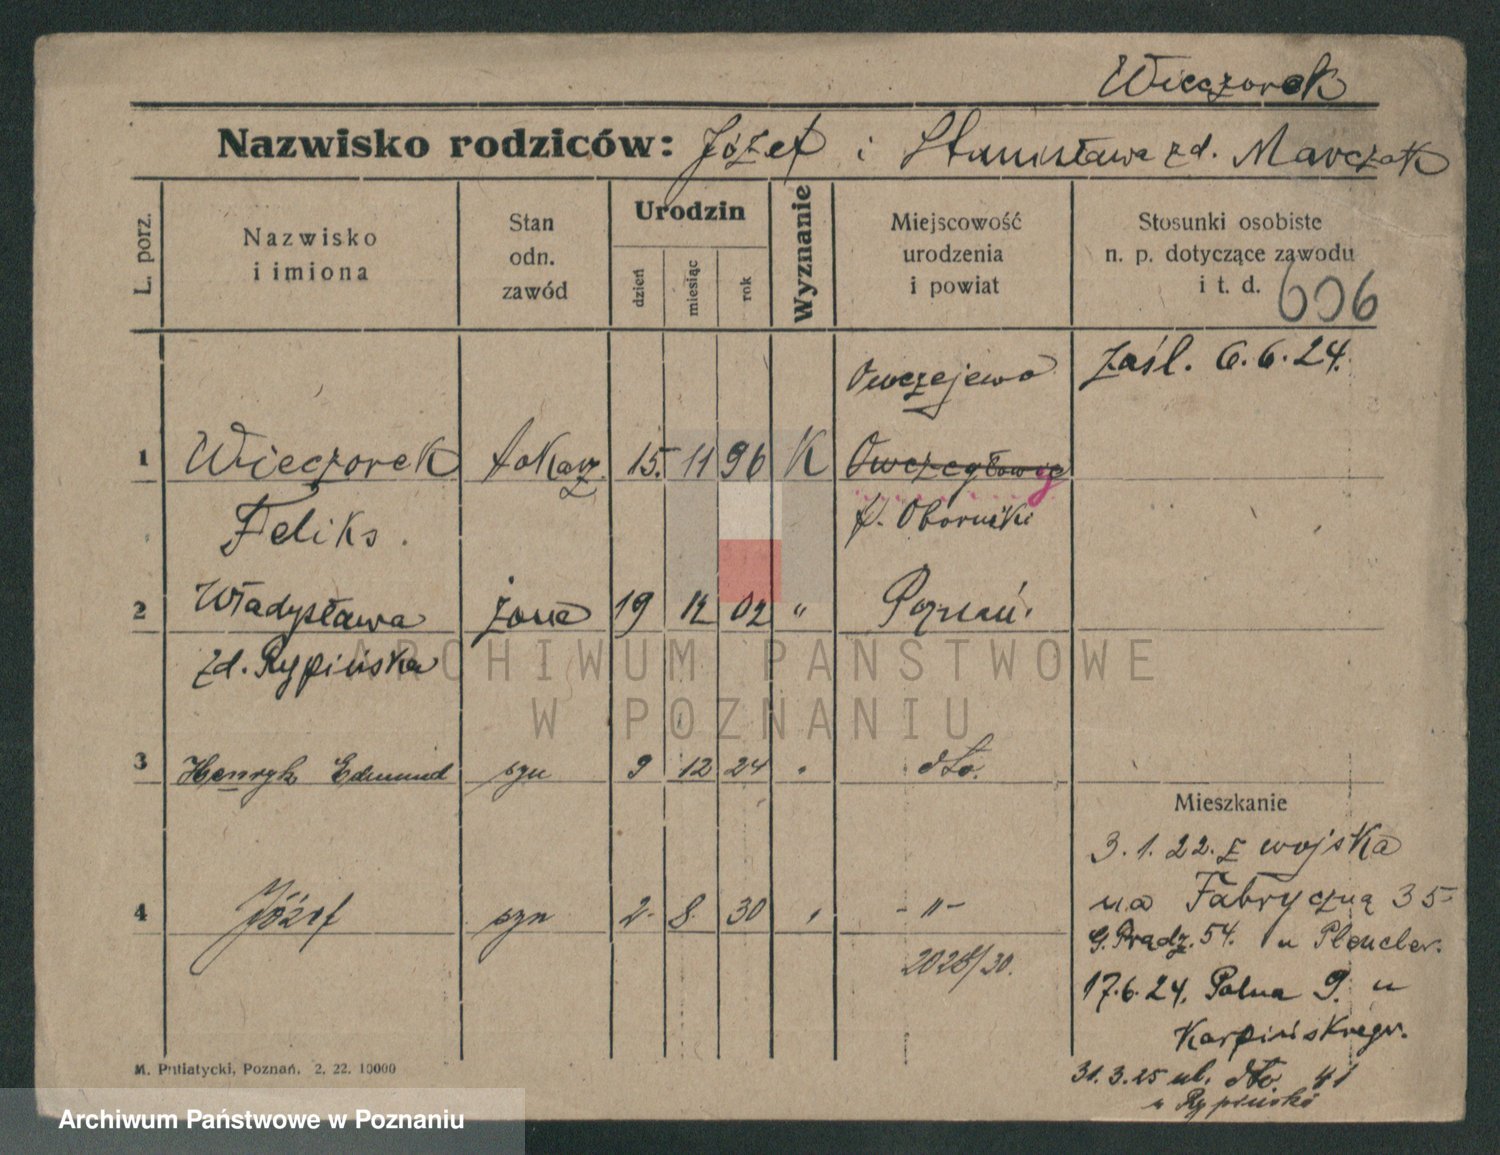 Wieczorek
Nazwisko rodziców: Józef i Stanisława zd. Marczak
L. porz.
Nazwisko i imiona
Stan odn. zawód
Urodzin
dzień
miesiąc
rok
Wyznanie
Miejscowość urodzenia i powiat
Stosunki osobiste
n. p. dotyczące zawodu
i t. d.
606
Owczejewo zaśl. 6.6.24.
1 Wieczorek tokarz 15. 11 96 K Owczegłowy
Feliks. p. Oborniki
2 Władysława żona 19 12 02 " Poznań.
zd. Rypińska
3 Henryk Edmund syn 9 12 24 " dto.
Mieszkanie
3.1.22. z wojska
na Fabryczną 35
4 Józef syn 2. 8. 30 " - " -
G. Prądz. 54. u
2028/30.
17.6.24. Polna 9. u
31.3.25 ul. dto 41
u Rypińska
M. Putiatycki, Poznań. 2. 22. 10000
ARCHIWUM PAŃSTWOWE
W POZNANIU
Archiwum Państwowe w Poznaniu